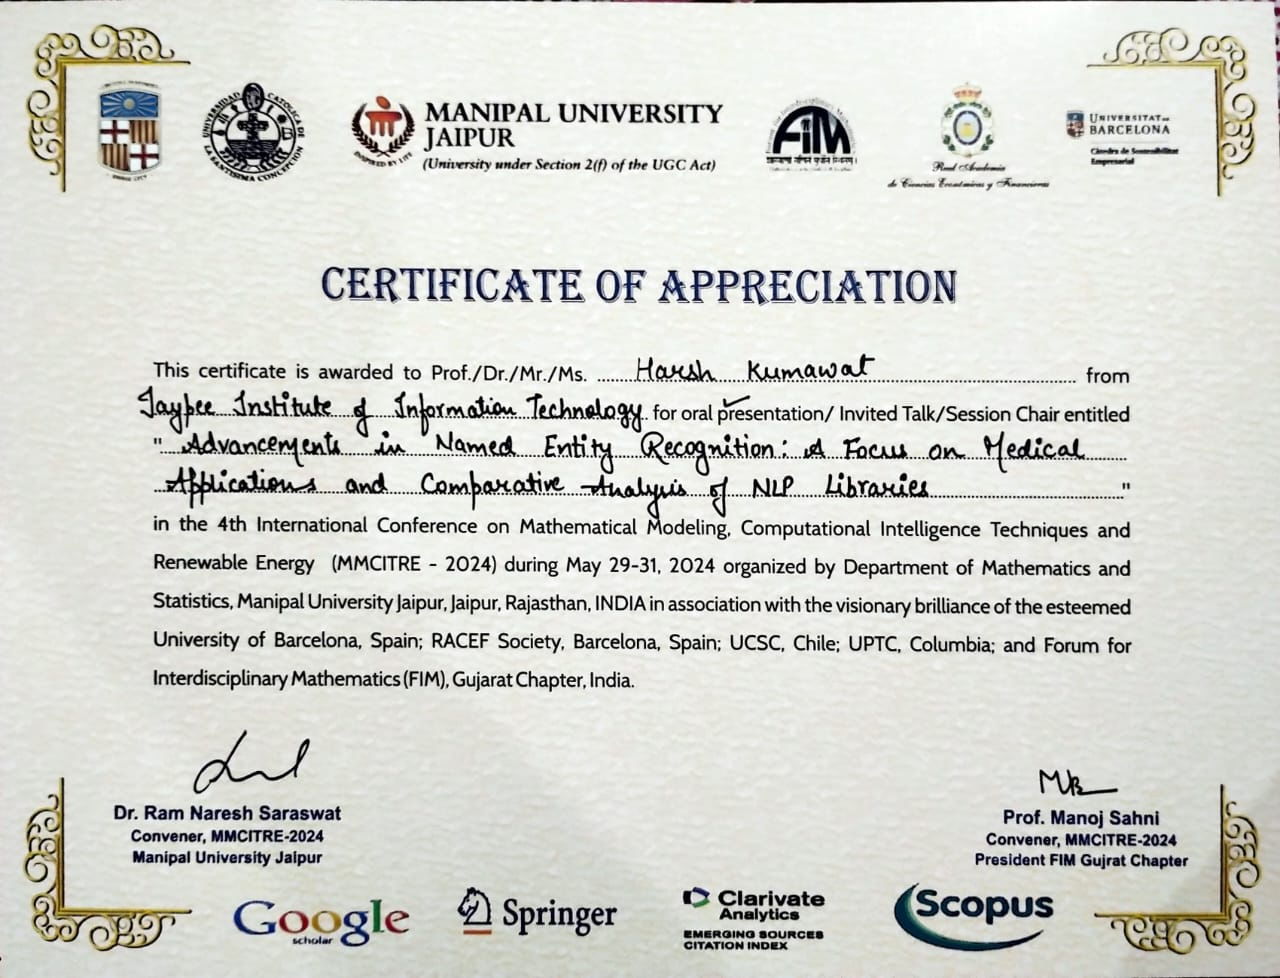 UNIVERSIDAD CATOLICA DE LA SANTISIMA CONCEPCION
MANIPAL UNIVERSITY
JAIPUR
(University under Section 2(f) of the UGC Act)
INSPIRED BY LIFE
FIM
Real Academia
de Ciencias Económicas y Financieras
UNIVERSITAT DE
BARCELONA
Càtedra de Sostenibilitat
Empresarial
CERTIFICATE OF APPRECIATION
This certificate is awarded to Prof./Dr./Mr./Ms. Harsh Kumawat from
Jaypee Institute of Information Technology for oral presentation/ Invited Talk/Session Chair entitled
" Advancements in Named Entity Recognition: A Focus on Medical
Applications and Comparative Analysis of NLP Libraries "
in the 4th International Conference on Mathematical Modeling, Computational Intelligence Techniques and
Renewable Energy (MMCITRE - 2024) during May 29-31, 2024 organized by Department of Mathematics and
Statistics, Manipal University Jaipur, Jaipur, Rajasthan, INDIA in association with the visionary brilliance of the esteemed
University of Barcelona, Spain; RACEF Society, Barcelona, Spain; UCSC, Chile; UPTC, Columbia; and Forum for
Interdisciplinary Mathematics (FIM), Gujarat Chapter, India.
Dr. Ram Naresh Saraswat
Convener, MMCITRE-2024
Manipal University Jaipur
Prof. Manoj Sahni
Convener, MMCITRE-2024
President FIM Gujrat Chapter
Google
scholar
Springer
Clarivate
Analytics
EMERGING SOURCES
CITATION INDEX
Scopus